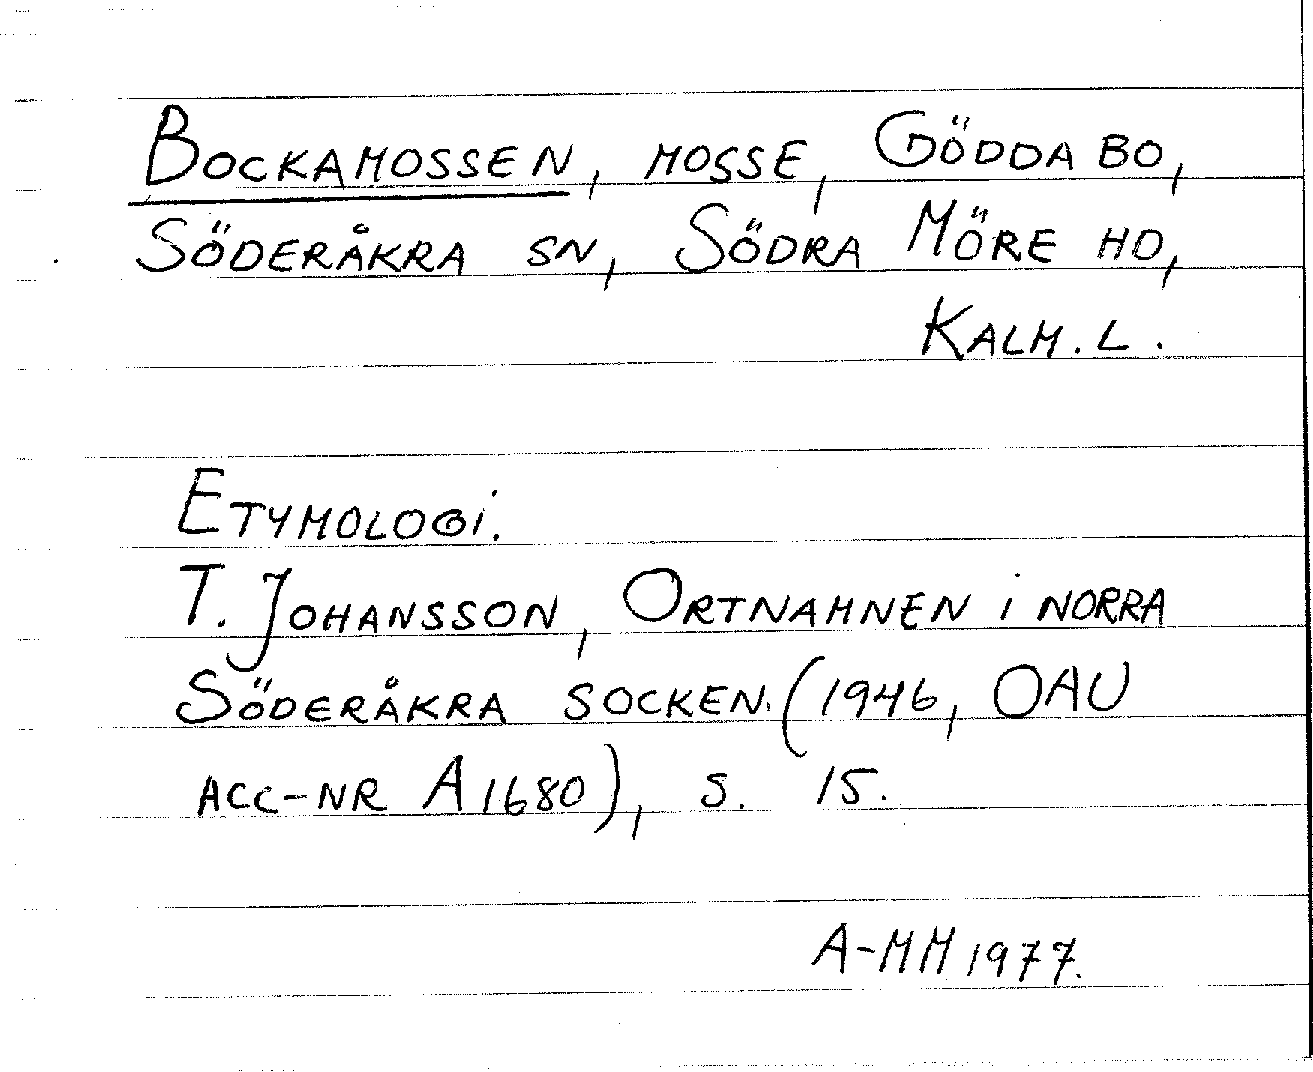 BOCKAMOSSEN, MOSSE, GÖDDABO,
SÖDERÅKRA SN, SÖDRA MÖRE HD,
KALM. L.
ETYMOLOGI.
T. JOHANSSON, ORTNAMNEN I NORRA
SÖDERÅKRA SOCKEN. (1946, OAU
ACC-NR A1680), S. 15.
A-MM 1977.